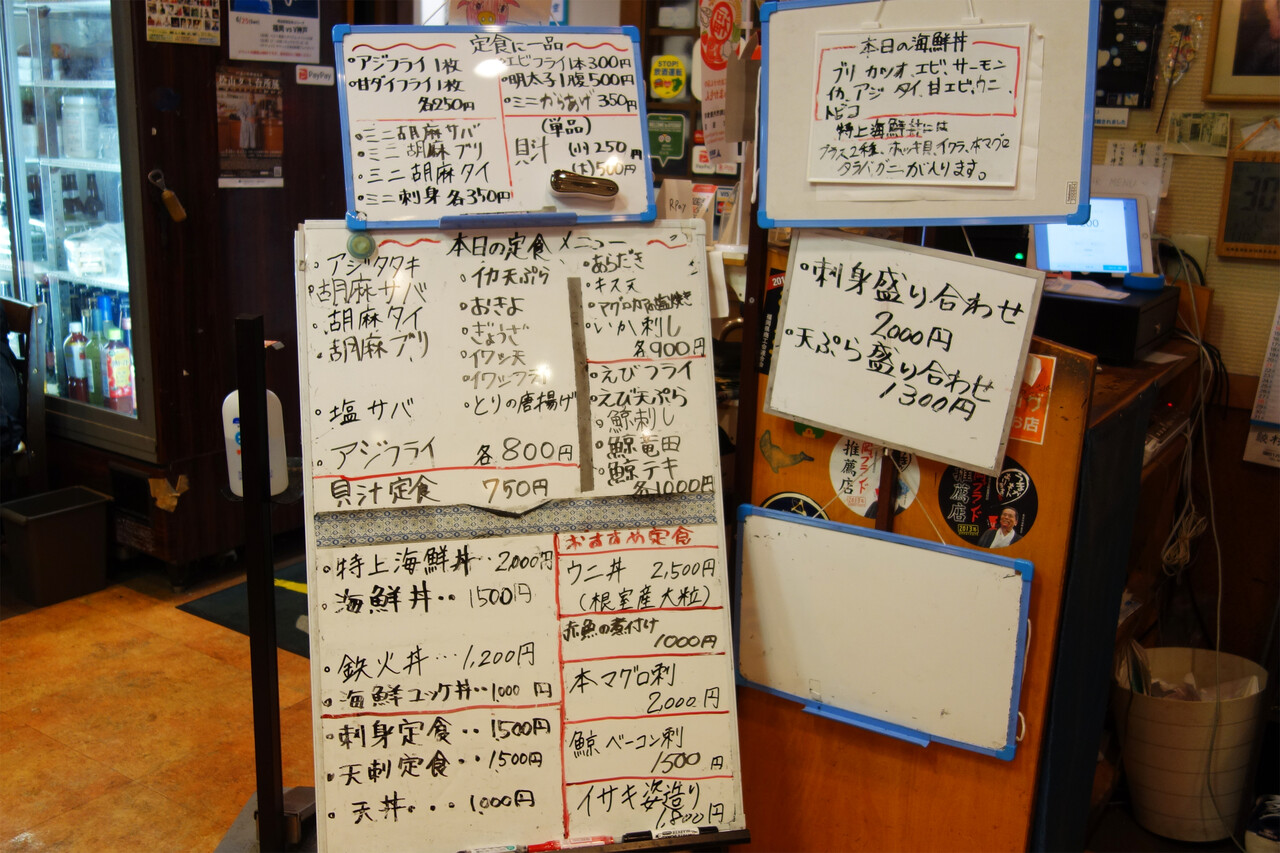 定食に一品
・アジフライ 1枚
・甘ダイフライ 1枚
各250円
・ミニ胡麻サバ
・ミニ胡麻ブリ
・ミニ胡麻タイ
・ミニ刺身 各350円
・エビフライ1本300円
・明太子1腹500円
・ミニからあげ 350円
(単品)
貝汁 (小)250円
(大)500円
本日の海鮮丼
ブリ カツオ、エビ、サーモン
イカ、アジ タイ、甘エビ、ウニ、
トビコ
特上海鮮丼には
プラス2種、ホッキ貝、イクラ、本マグロ
タラバガニが入ります。
本日の定食メニュー
・アジタタキ
・胡麻サバ
・胡麻タイ
・胡麻ブリ
・塩サバ
・アジフライ
・イカ天ぷら
・おきよ
・ぎょうざ
・イワシ天
・イワシフライ
・とりの唐揚げ
各800円
貝汁定食 750円
・あらだき
・キス天
・マグロカマ塩焼き
・いか刺し
各900円
・えびフライ
・えび天ぷら
・鯨刺し
・鯨竜田
・鯨テキ
各1000円
・刺身盛り合わせ
2000円
・天ぷら盛り合わせ
1300円
・特上海鮮丼・・2,000円
・海鮮丼・・1500円
・鉄火丼・・・1,200円
・海鮮ユッケ丼・・1000円
・刺身定食・・1,500円
・天刺定食・・1,500円
・天丼・・・1,000円
おすすめ定食
ウニ丼 2,500円
(根室産大粒)
赤魚の煮付け
1000円
本マグロ刺
2,000円
鯨ベーコン刺
1500円
イサキ姿造り
1,800円
PayPay
STOP!
飲酒運転
R Pay
推薦店
推薦店
30